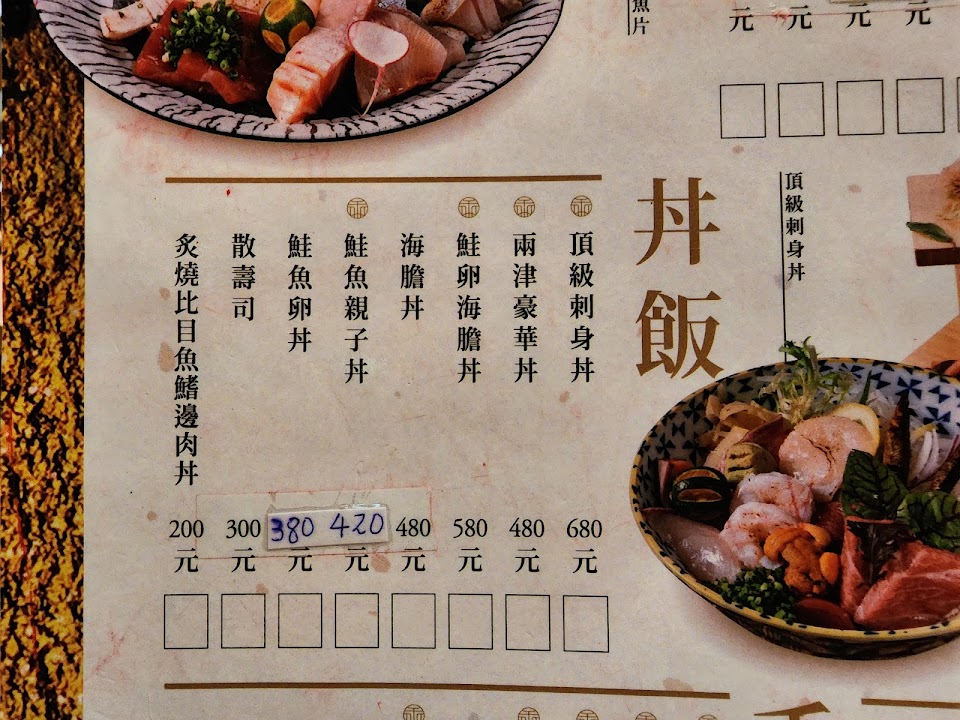 魚片
元
元
元
元
頂級刺身丼
丼飯
頂級刺身丼 680元
兩津豪華丼 480元
鮭卵海膽丼 580元
海膽丼 480元
鮭魚親子丼 420元
鮭魚卵丼 380元
散壽司 300元
炙燒比目魚鰭邊肉丼 200元